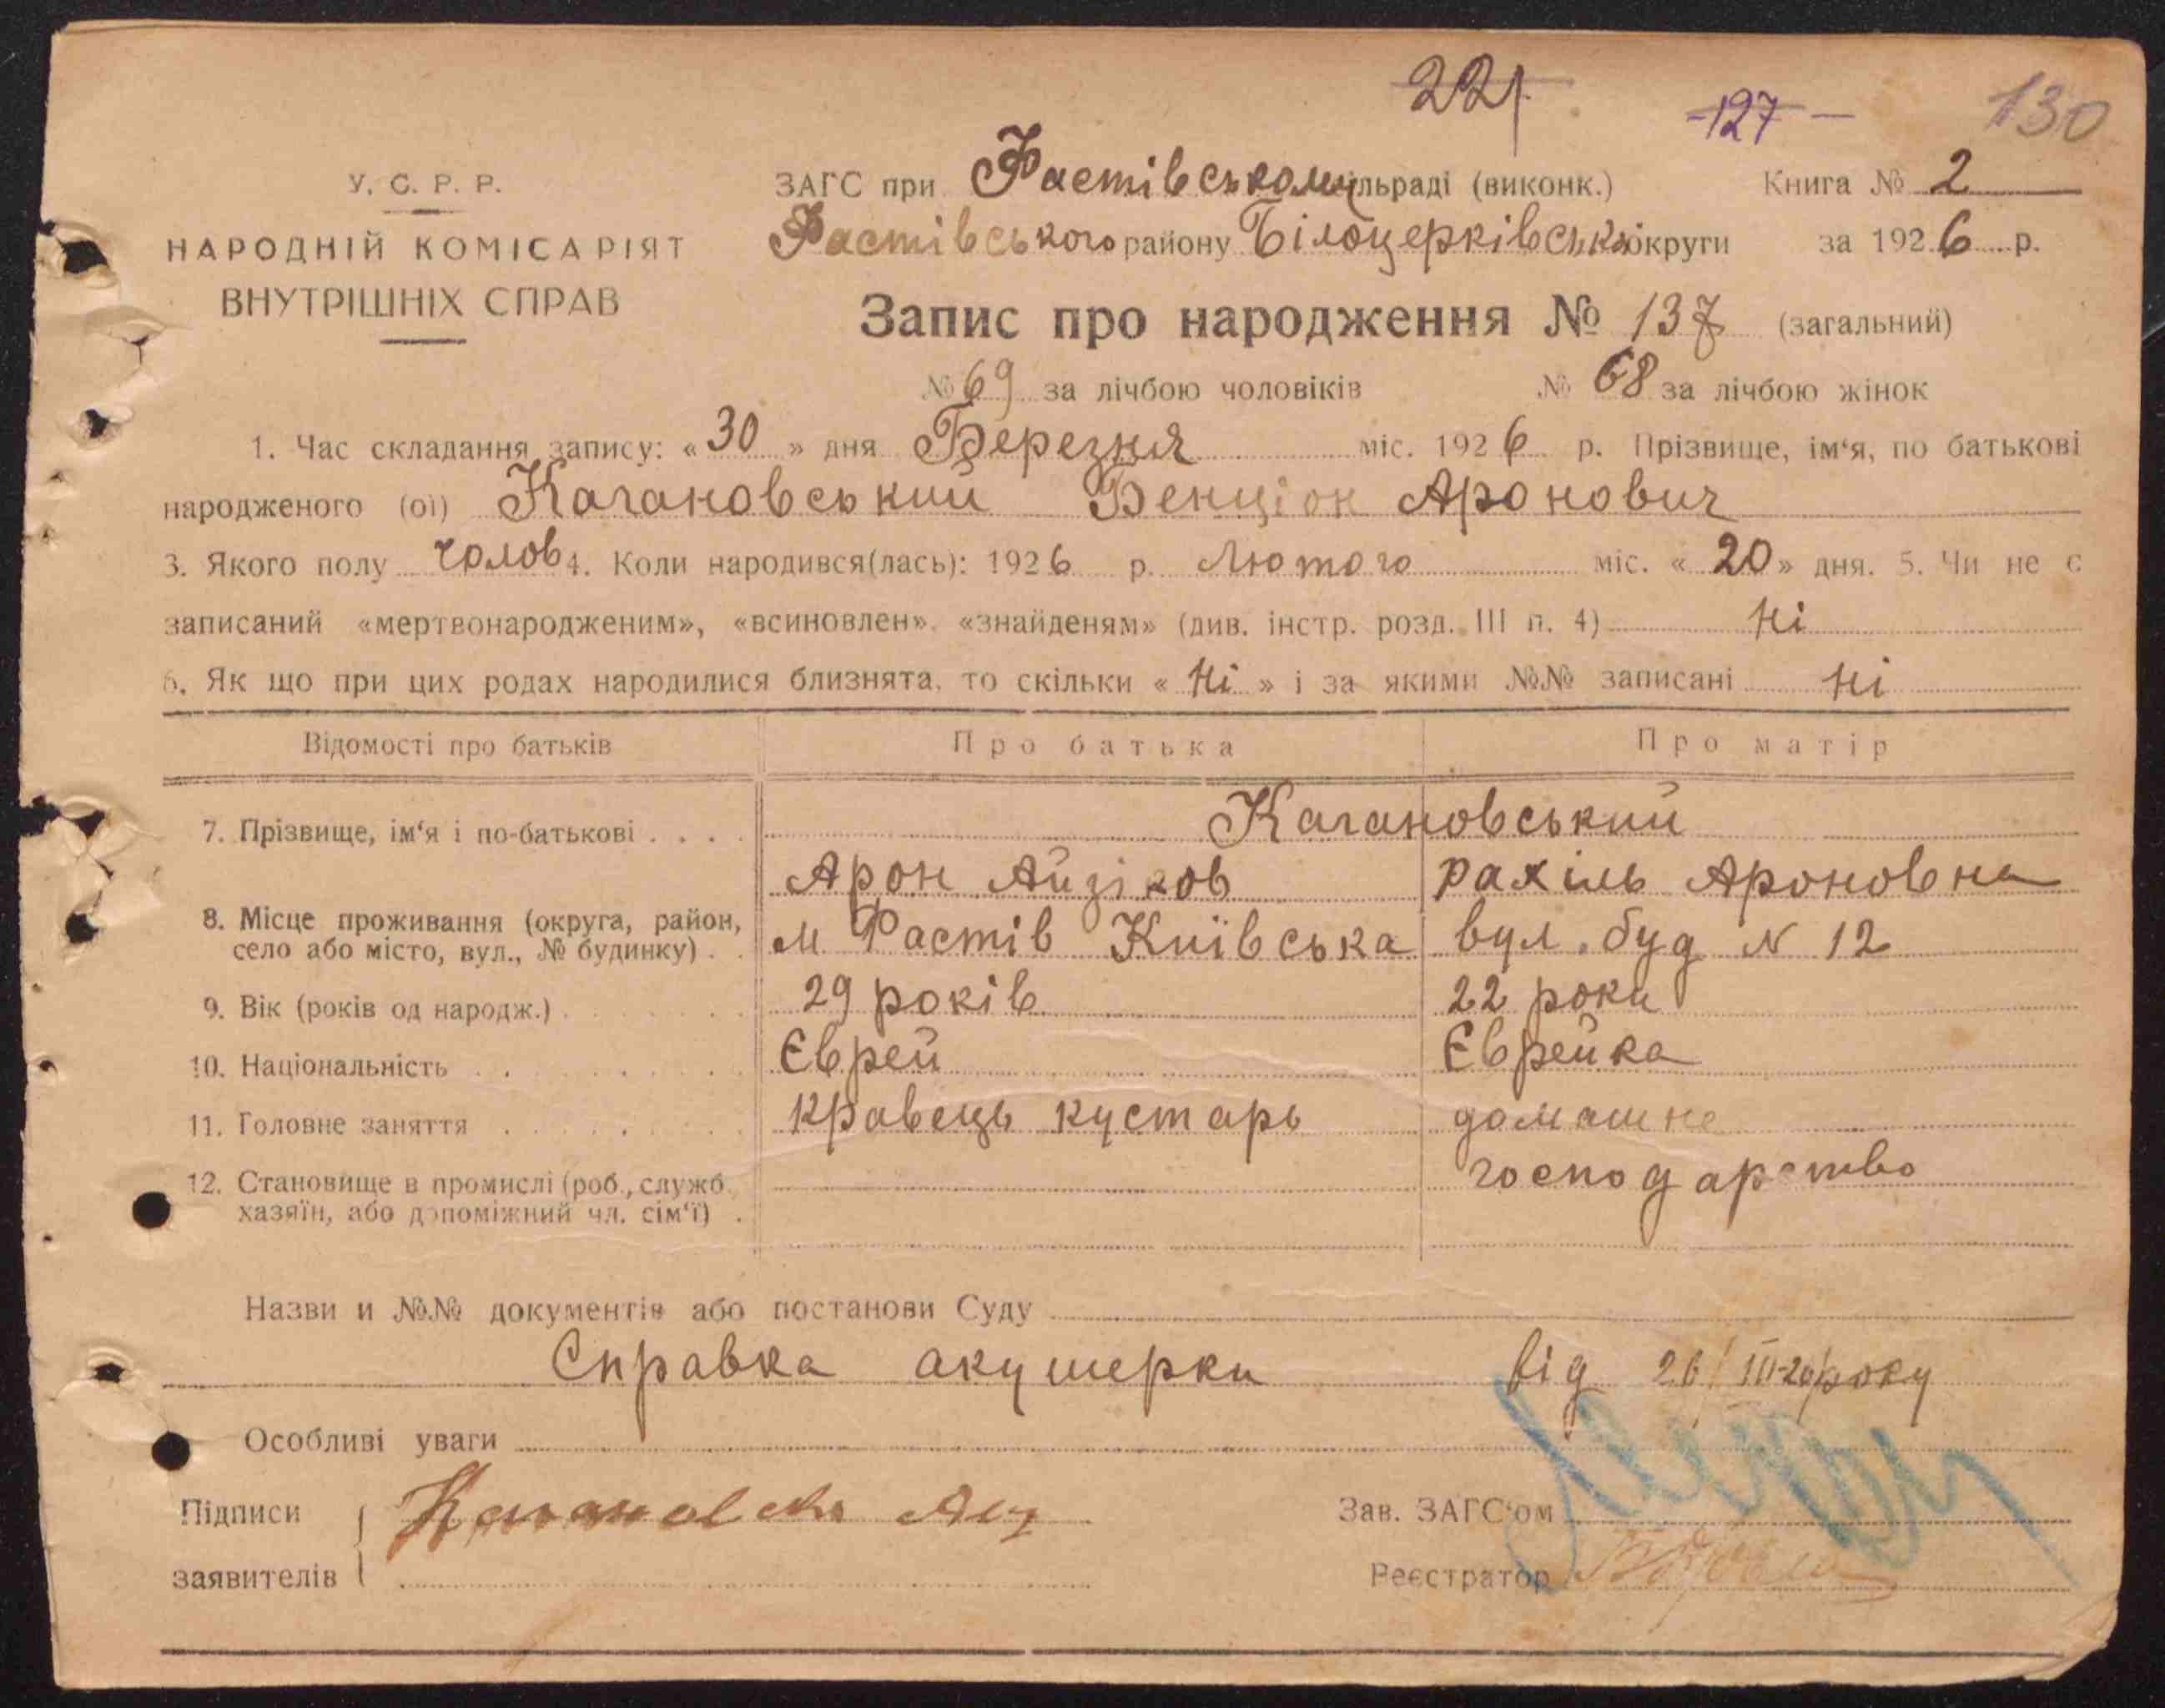 221
127
130
У. С. Р. Р.
НАРОДНІЙ КОМІСАРІЯТ
ВНУТРІШНІХ СПРАВ
ЗАГС при Фастівському ільраді (виконк.)
Книга № 2
Фастівського району Білоцерківської округи
за 1926 р.
Запис про народження № 137 (загальний)
№ 69 за лічбою чоловіків № 68 за лічбою жінок
1. Час складання запису: « 30 » дня Березня міс. 1926 р. Прізвище, ім‘я, по батькові
народженого (ої) Кагановський Бенціон Аронович
3. Якого полу чолов 4. Коли народився(лась): 1926 р. Лютого міс. « 20 » дня. 5. Чи не є
записаний «мертвонародженим», «всиновлен», «знайденям» (див. інстр. розд. III п. 4) Ні
6. Як що при цих родах народилися близнята, то скільки « Ні » і за якими №№ записані Ні
Відомості про батьків
Про батька
Про матір
7. Прізвище, ім‘я і по-батькові . . . .
Кагановський
Арон Айзіков
Рахіль Ароновна
8. Місце проживання (округа, район,
село або місто, вул., № будинку) . .
м Фастів Київська
вул. буд N 12
9. Вік (років од народж.) . . . . . . .
29 років
22 роки
10. Національність . . . . . . . . .
Єврей
Єврейка
11. Головне заняття . . . . . . . . .
кравець кустарь
домашнє
господарство
12. Становище в промислі (роб., служб.
хазяїн, або допоміжний чл. сім‘ї) .
Назви и №№ документів або постанови Суду
Справка акушерки від 26/III-26 року
Особливі уваги
Підписи
заявителів
Зав. ЗАГС‘ом
Реєстратор